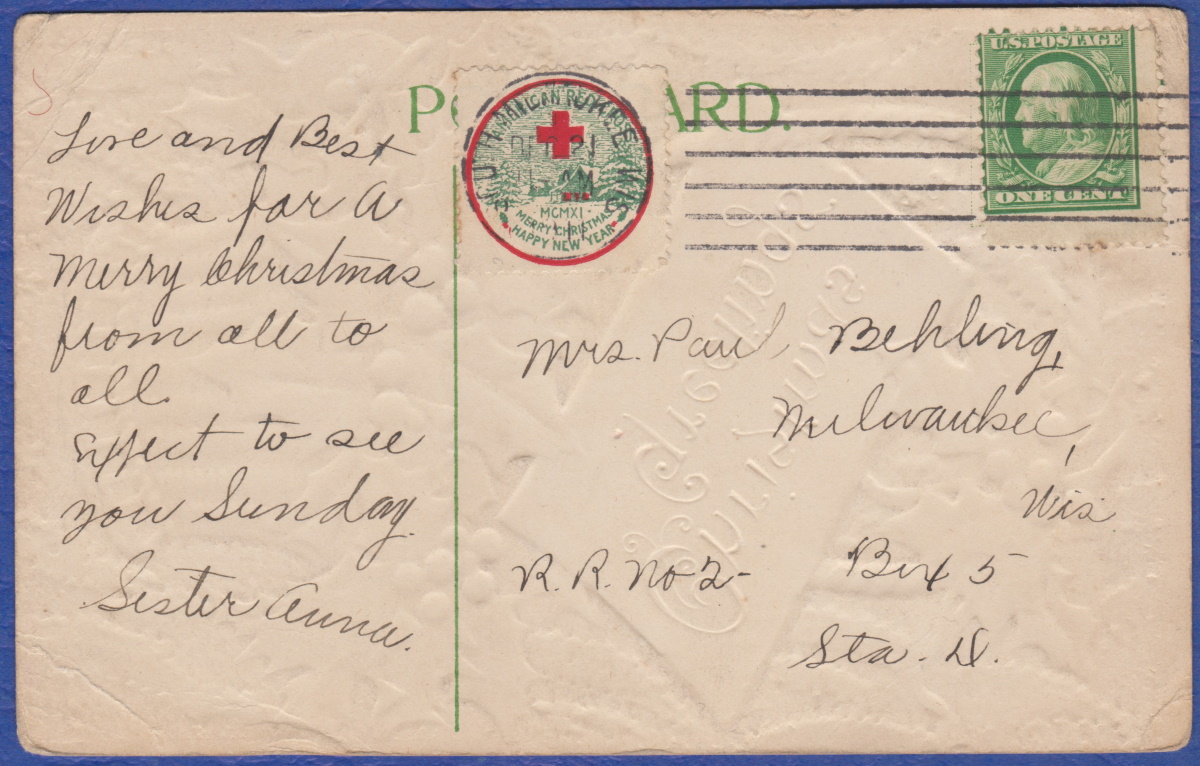 POST CARD.
AMERICAN RED
MILWAUKEE, WIS
DEC 21
AM
MCMXI
MERRY CHRISTMAS
HAPPY NEW YEAR
U.S. POSTAGE
ONE CENT
Love and Best
Wishes for a
Merry Christmas
from all to
all.
Expect to see
you Sunday.
Sister Anna.
Mrs. Paul Behling,
Milwaukee,
Wis
R. R. No 2-
Box 5
Sta. D.